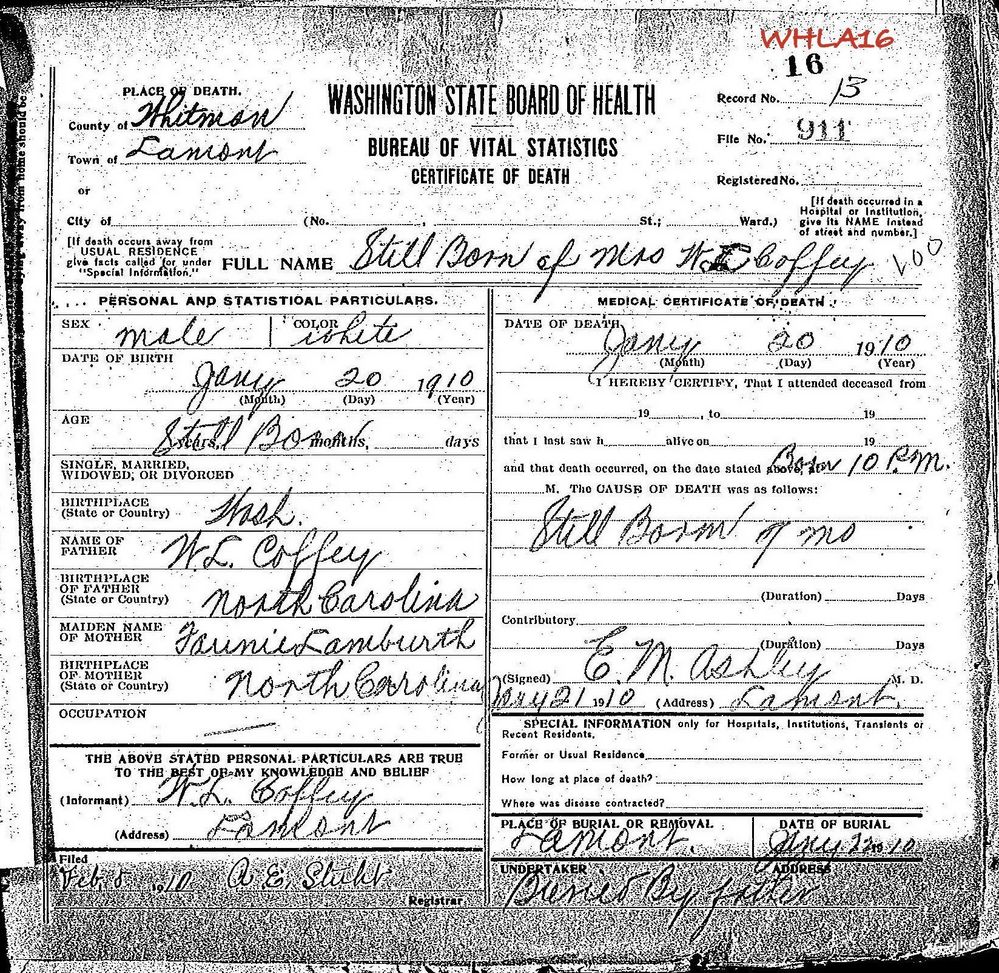 WHLA16
16
PLACE OF DEATH.
County of Whitman
Town of Lamont
or
City of (No. , St.; Ward.)
WASHINGTON STATE BOARD OF HEALTH
BUREAU OF VITAL STATISTICS
CERTIFICATE OF DEATH
Record No. 13
File No. 911
Registered No.
[If death occurred in a
Hospital or Institution,
give its NAME instead
of street and number.]
[If death occurs away from
USUAL RESIDENCE
give facts called for under
"Special Information."
FULL NAME Still Born of Mrs W L Coffey
100
PERSONAL AND STATISTICAL PARTICULARS.
SEX male COLOR white
DATE OF BIRTH
Jany 20 1910
(Month) (Day) (Year)
AGE
Still Born
years, months, days
SINGLE, MARRIED,
WIDOWED, OR DIVORCED
BIRTHPLACE
(State or Country) Wash.
NAME OF
FATHER W.L. Coffey
BIRTHPLACE
OF FATHER
(State or Country) North Carolina
MAIDEN NAME
OF MOTHER Fannie Lamburth
BIRTHPLACE
OF MOTHER
(State or Country) North Carolina
OCCUPATION
THE ABOVE STATED PERSONAL PARTICULARS ARE TRUE
TO THE BEST OF MY KNOWLEDGE AND BELIEF
(Informant) W.L. Coffey
(Address) Lamont
Filed
Feb. 8 1910 A E Stuht
Registrar
MEDICAL CERTIFICATE OF DEATH.
DATE OF DEATH
Jany 20 1910
(Month) (Day) (Year)
I HEREBY CERTIFY, That I attended deceased from
19 , to 19
that I last saw h alive on 19
and that death occurred, on the date stated above, Born 10 P.M.
M. The CAUSE OF DEATH was as follows:
Still Born
(Duration) Days
Contributory
(Duration) Days
(Signed) E. M. Ashley M. D.
Jany 21 1910 (Address) Lamont.
SPECIAL INFORMATION only for Hospitals, Institutions, Transients or
Recent Residents.
Former or Usual Residence
How long at place of death?
Where was disease contracted?
PLACE OF BURIAL OR REMOVAL
Lamont.
DATE OF BURIAL
Jany 22 1910
UNDERTAKER
ADDRESS
Buried By father